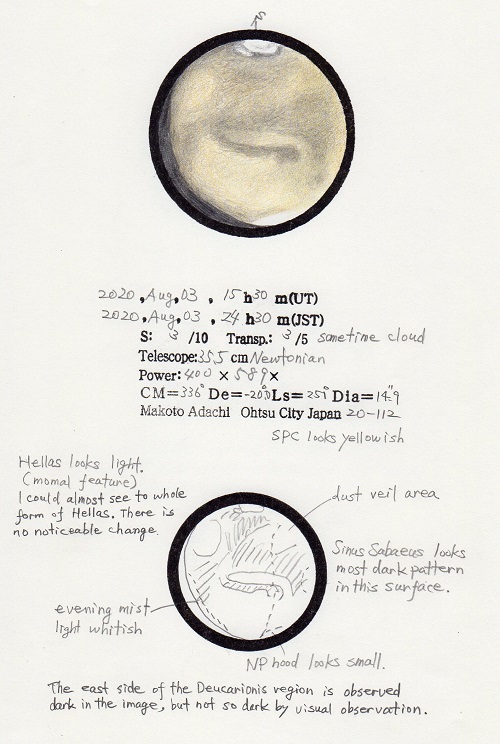 S
2020, Aug, 03, 15 h 30 m(UT)
2020, Aug, 03, 24 h 30 m(JST)
S: 3 /10 Transp.: 3 /5 sometime cloud
Telescope: 355 cm Newtonian
Power: 400 × 589×
CM=336° De=-20°0 Ls=251° Dia=14"9
Makoto Adachi Ohtsu City Japan 20-112
SPC looks yellowish
Hellas looks light.
(momal feature)
I could almost see to whole
form of Hellas. There is
no noticeable change.
dust veil area
Sinus Sabaeus looks
most dark pattern
in this surface.
evening mist
light whitish
NP hood looks small.
The east side of the Deucarionis region is observed
dark in the image, but not so derk by visual observation.